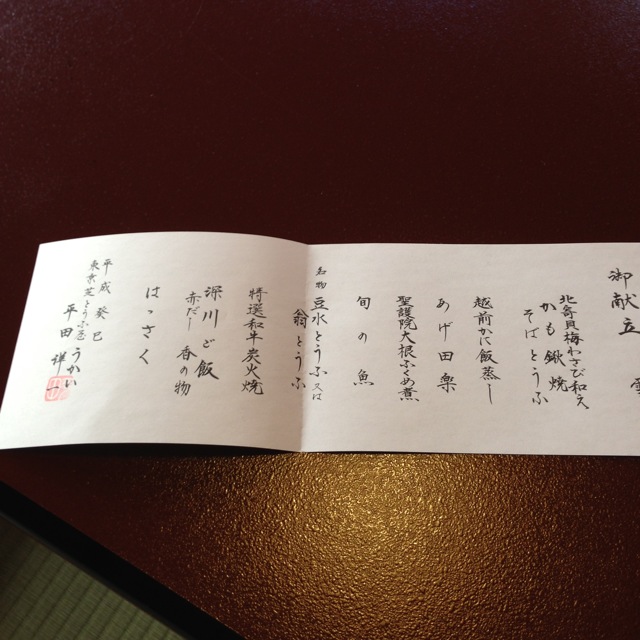 御献立
北寄貝梅わさび和え
かも鍬焼
そばとうふ
越前かに飯蒸し
あげ田楽
聖護院大根ふくめ煮
旬の魚
名物 豆水とうふ 又は
翁とうふ
特選和牛炭火焼
深川ご飯
赤だし 香の物
はっさく
平成癸巳
東京芝とうふ屋うかい
平田祥一